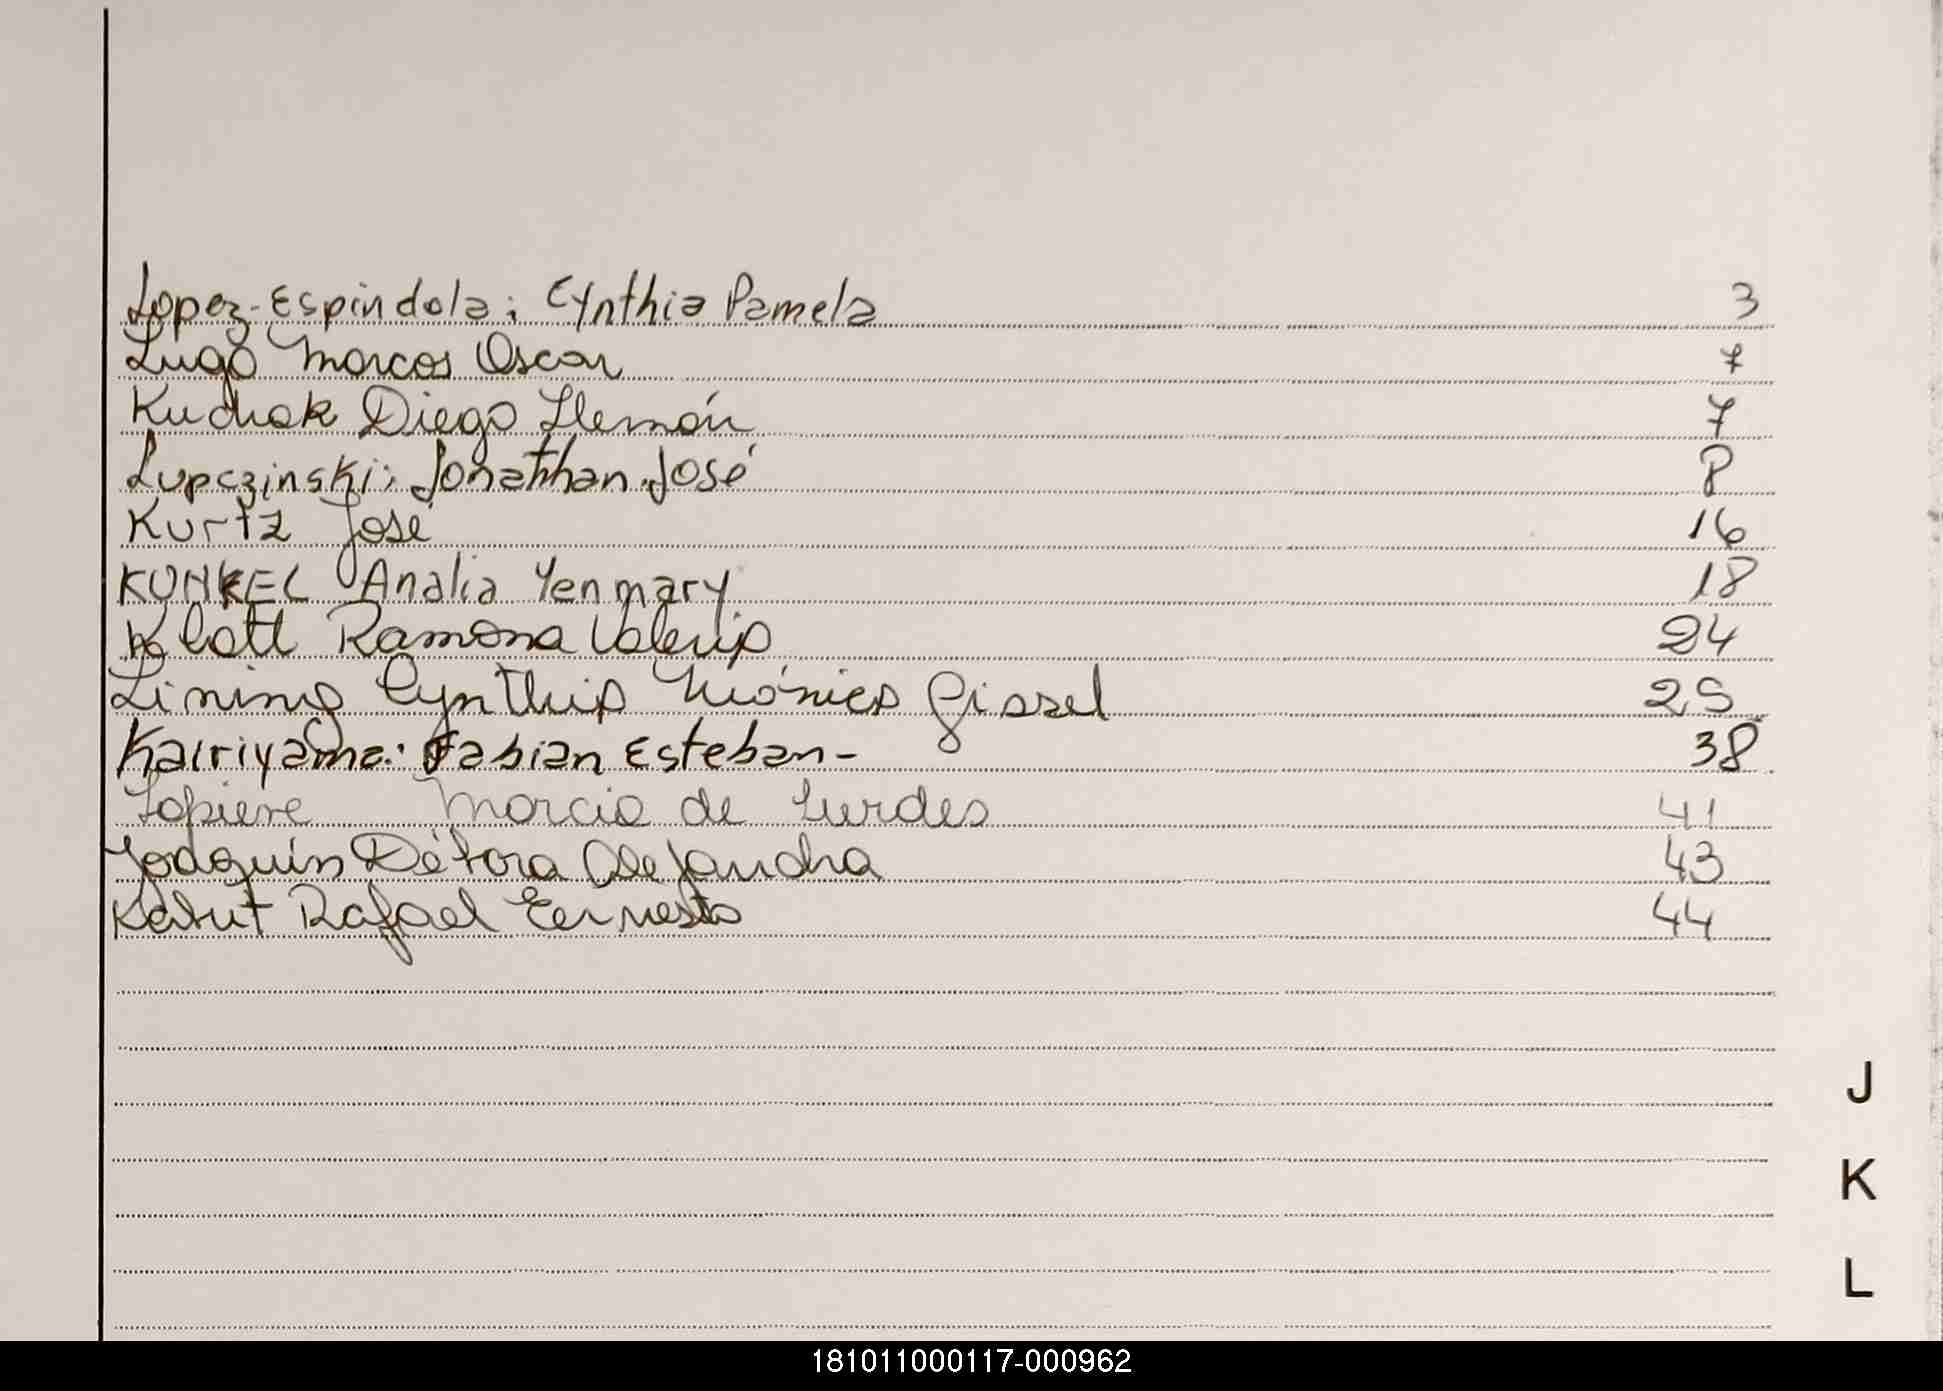 Lopez-Espindola; Cynthia Pamela 3
Lugo Marcos Oscar 7
Kuchak Diego Hernán 7
Lupczinski; Jonathan José 8
Kurtz José 16
KUNKEL Analia Yenmary 18
Klott Ramona Valeria 24
Lining Cynthia Mónica Gissel 25
Kairiyama: Fabian Esteban- 38
Marcia de Lurdes 41
Joaquin Débora Alejandra 43
Rafael Ernesto 44
J
K
L
181011000117-000962